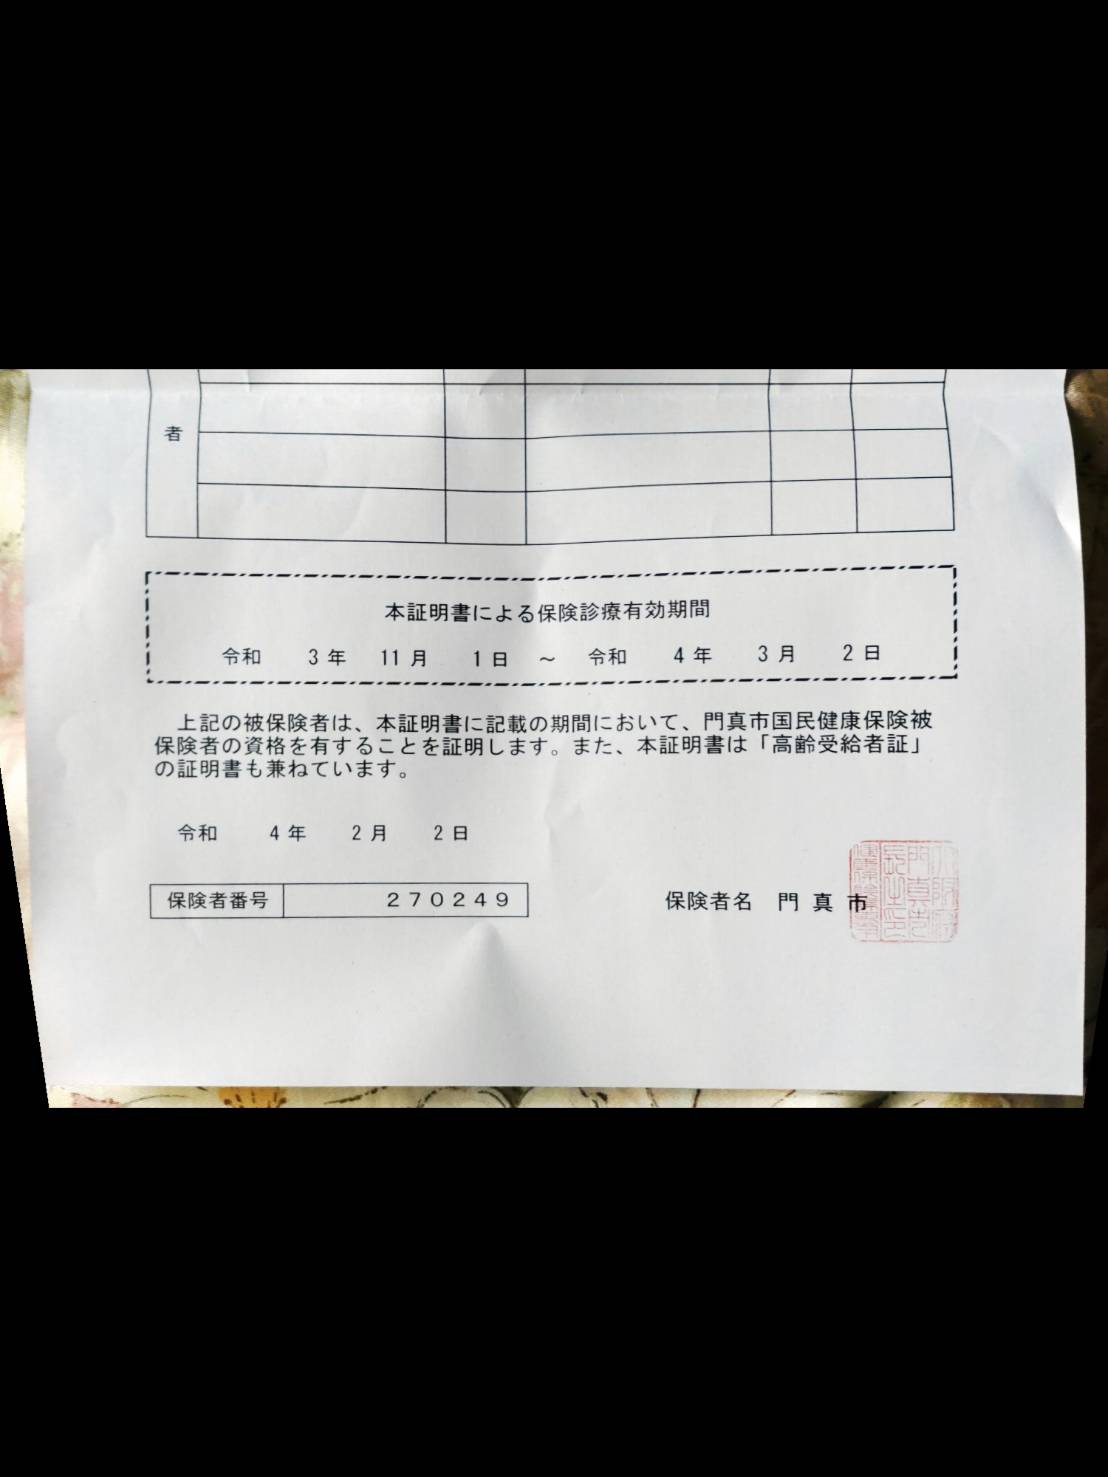 者
本証明書による保険診療有効期間
令和 3年 11月 1日 ～ 令和 4年 3月 2日
上記の被保険者は、本証明書に記載の期間において、門真市国民健康保険被
保険者の資格を有することを証明します。また、本証明書は「高齢受給者証」
の証明書も兼ねています。
令和 4年 2月 2日
保険者番号 270249 保険者名 門真市